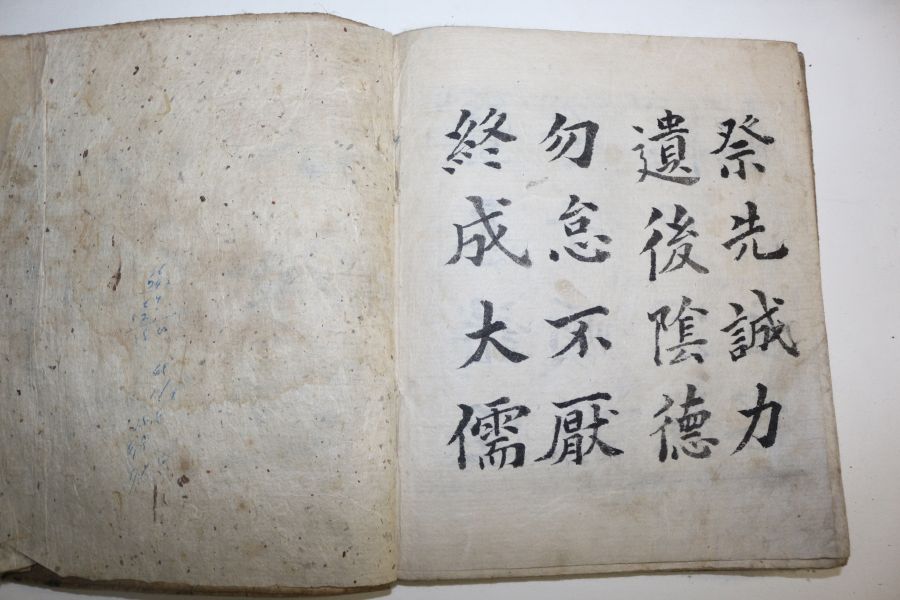 祭先誠力
遺後陰德
勿怠不厭
終成大儒